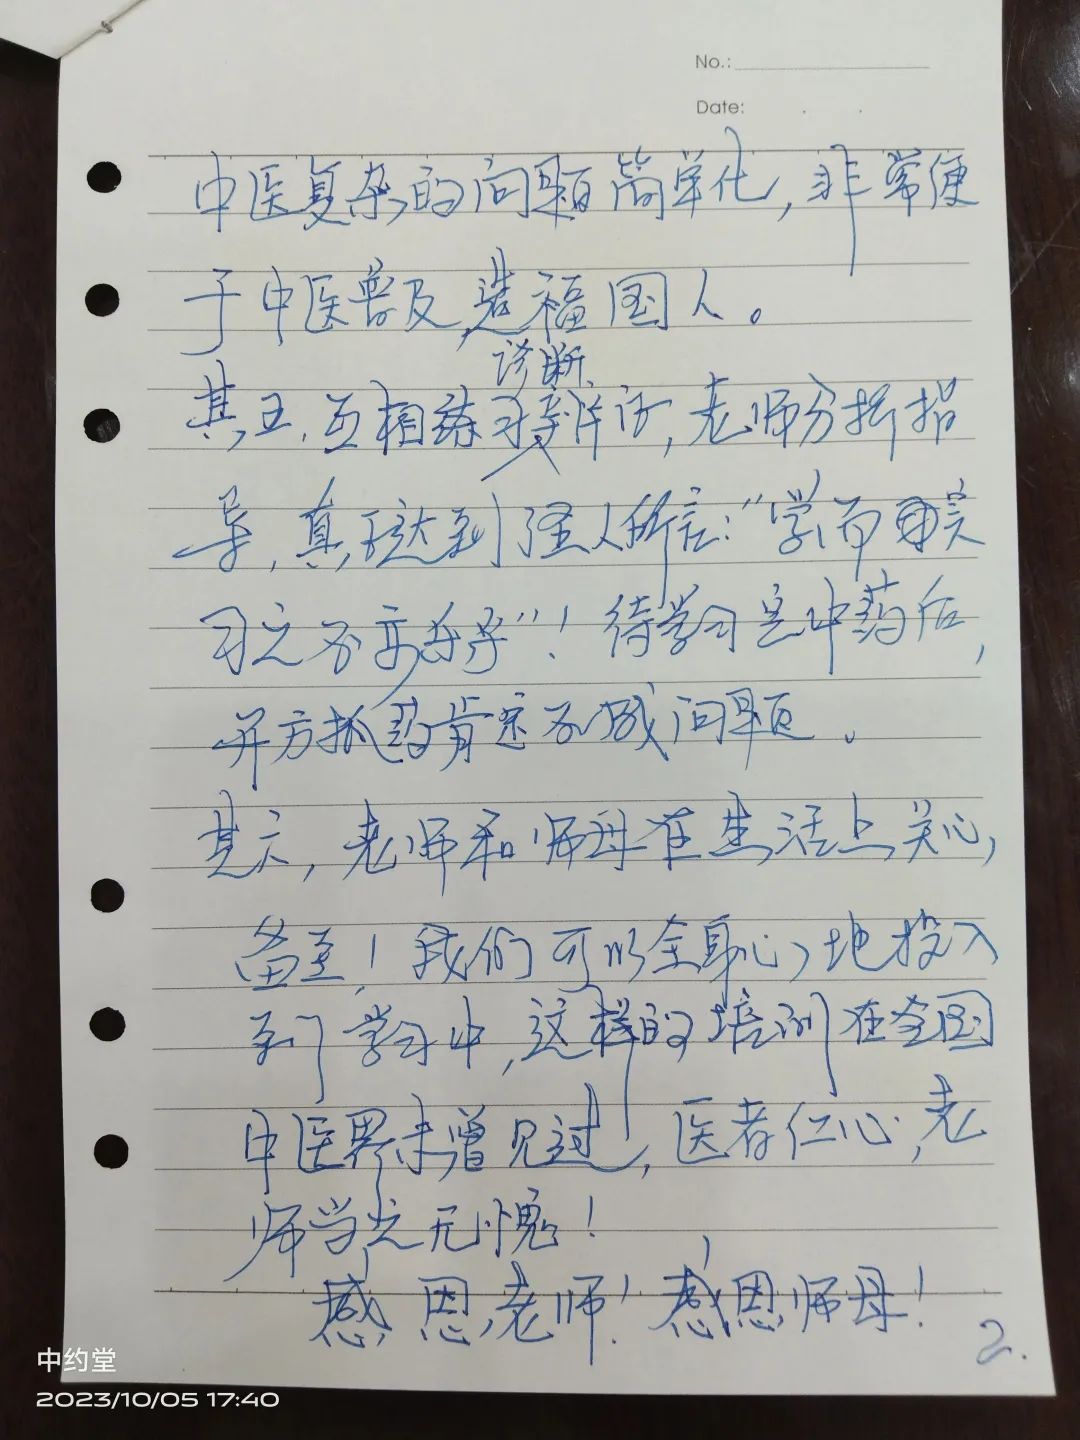 No.:
Date:
中医复杂的问题简单化，非常便
于中医普及，造福国人。
诊断
其五，互相练习辨证，老师分析指
导，真正达到圣人所言：“学而
习之不亦乐乎”！待学习完中药后，
开方抓药肯定不成问题。
其六，老师和师母在生活上关心
备至！我们可以全身心地投入
到学习中，这样的培训在全国
中医界未曾见过，医者仁心，老
师当之无愧！
感恩老师！感恩师母！
2.
中约堂
2023/10/05 17:40